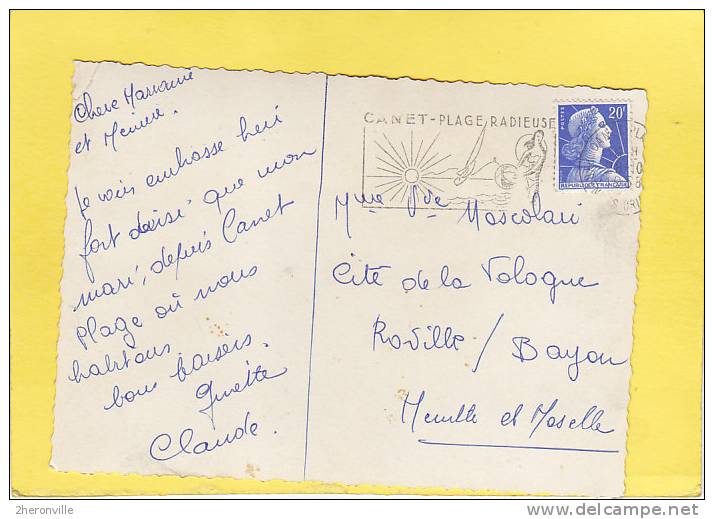 Chere Marraine
et Meniere.
Je vous embrasse
fort ainsi que mon
mari, depuis Canet
plage où nous
habitons
bons baisers.
Ginette
Claude.
CANET-PLAGE RADIEUSE
POSTES
20F
REPUBLIQUE FRANÇAISE
Mme Vve Moscolari
Cite de la Pologne
Roville / Bayon
Meurthe et Moselle
2heronville
delcampe.net